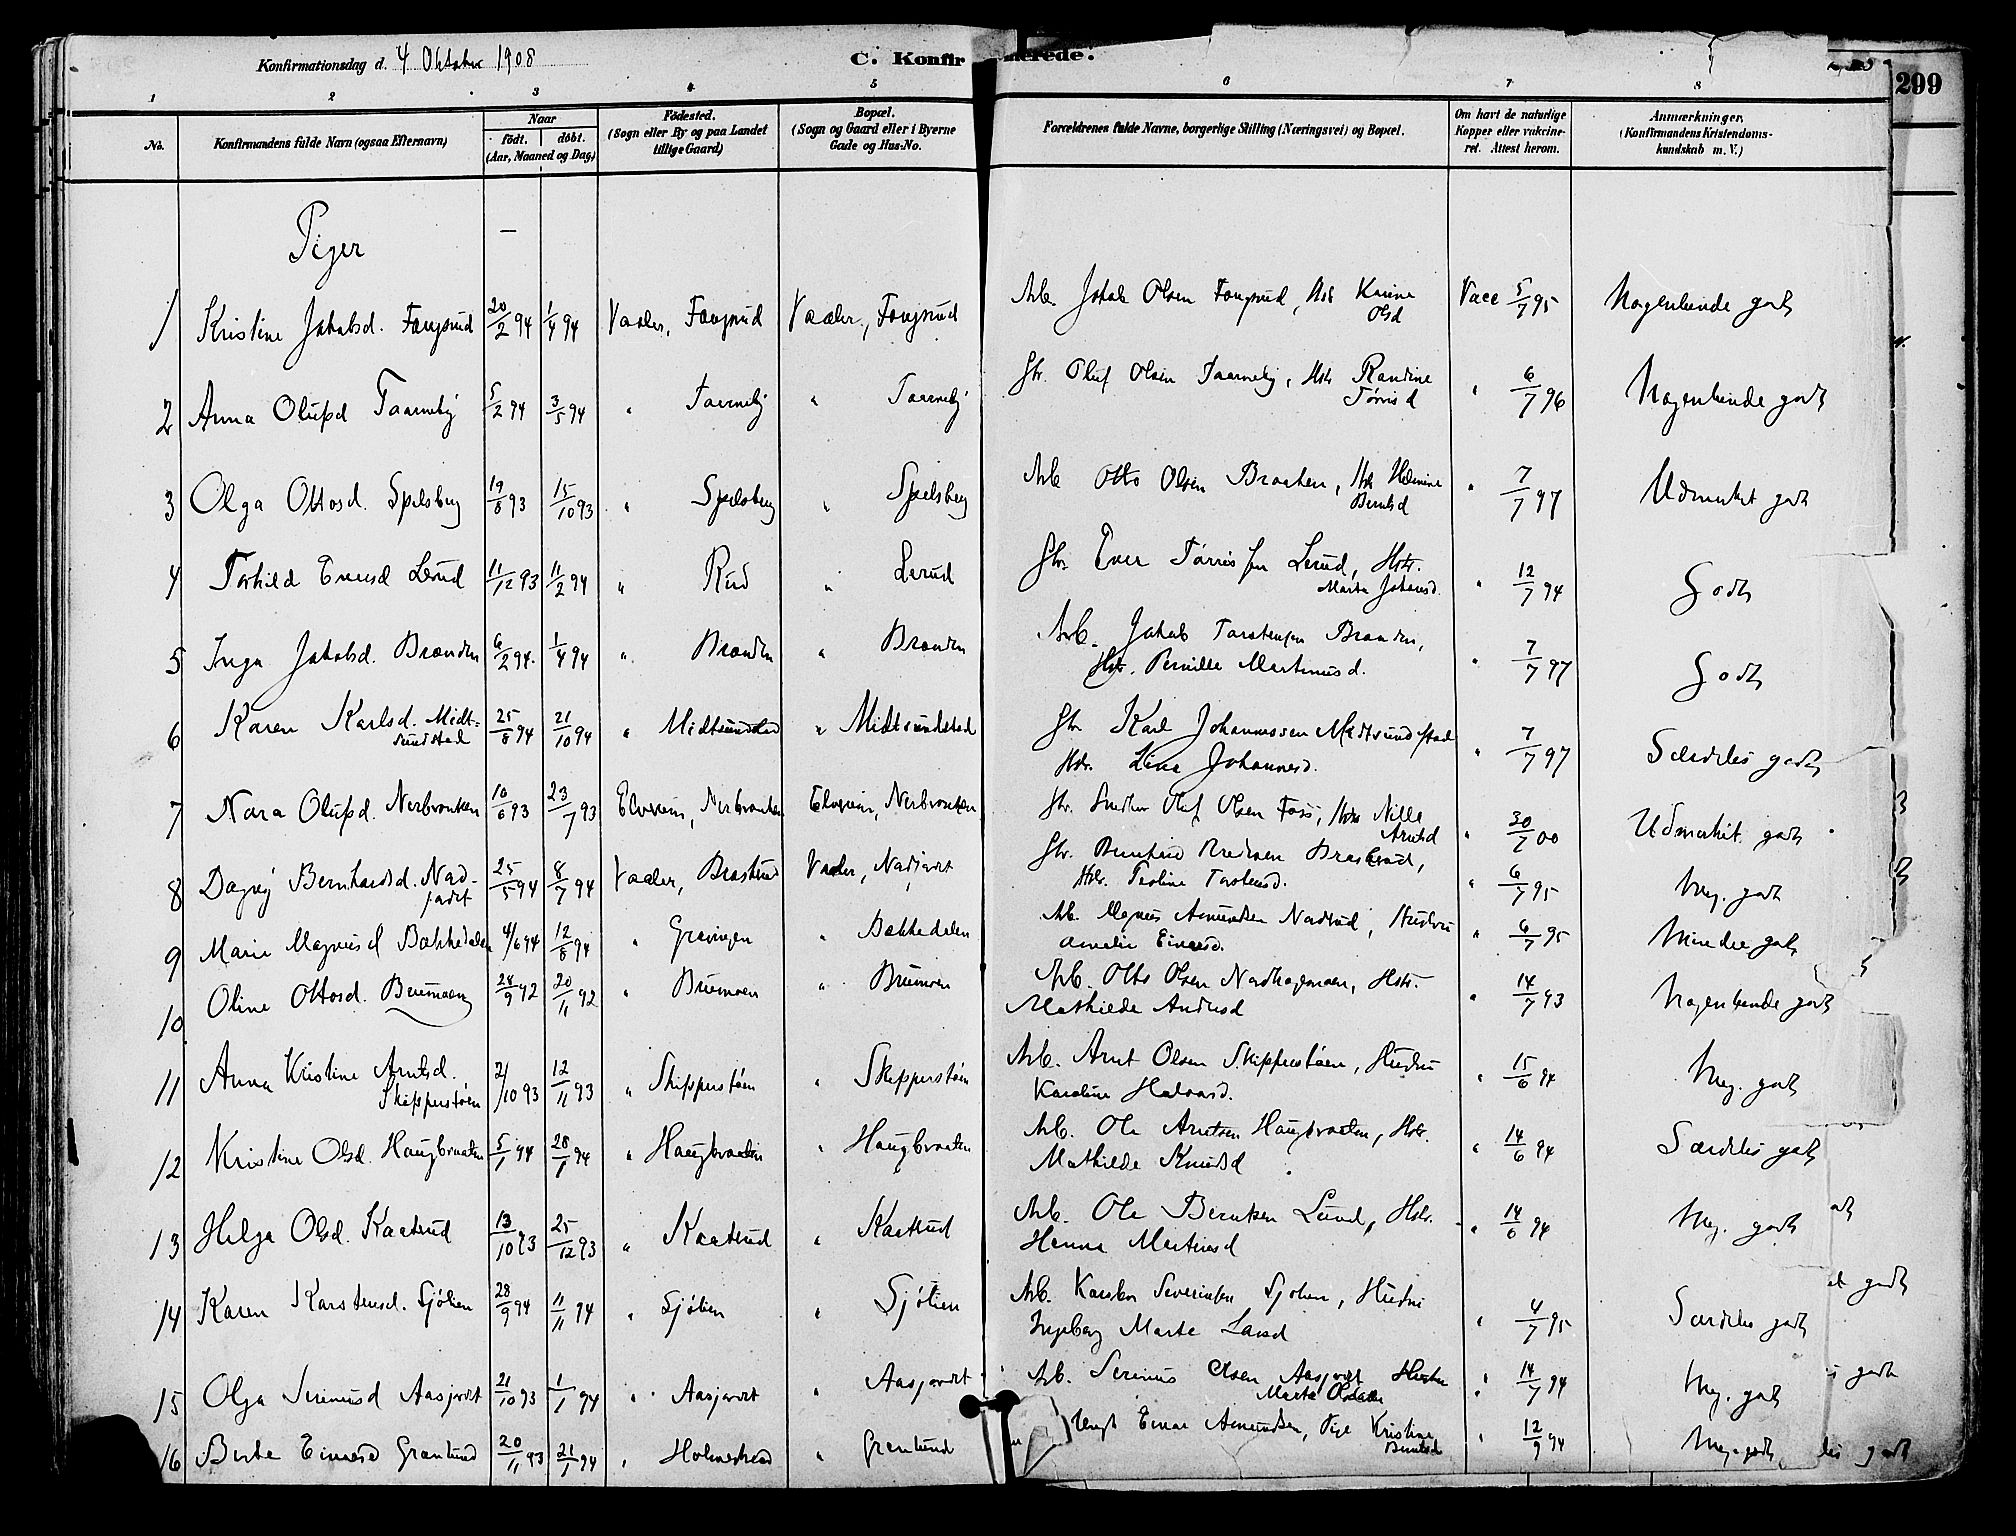 Konfirmationsdag d. 4 Oktober 1908
C. Konfir merede.
299
1 2 3 4 5 6 7 8
No. Konfirmandens fulde Navn (ogsaa Efternavn) Naar født. døbt. (Aar, Maaned og Dag.) Fødested. (Sogn eller By og paa Landet tillige Gaard) Bopæl. (Sogn og Gaard eller i Byerne Gade og Hus-No. Forældrenes fulde Navne, borgerlige Stilling (Næringsvei) og Bopæl. Om havt de naturlige Kopper eller vakcineret. Attest herom. Anmærkninger. (Konfirmandens Kristendomskundskab m. V.)
Piger —
1 Kristine Jakobsd. Fangsrud 20/2 94 1/4 94 Vaaler, Fangsrud Vaaler, Fangsrud Arb. Jakob Olsen Fangsrud, Hstr Karine Olsd Vacc 5/7 95 Nogenlunde godt
2 Anna Olufsd Taarneby 5/2 94 3/5 94 " Taarneby " Taarneby Gbr. Oluf Olsen Taarneby, Hstr Randine Tørrisd " 6/7 96 Nogenlunde godt
3 Olga Ottosd. Spelsberg 19/8 93 15/10 93 " Spelsberg " Spelsberg Arb Otto Olsen Braaten, Hstr Helmine Berntsd " 7/7 97 Udmerket godt
4 Torhild Eversd Lerud 11/12 93 11/2 94 " Rud " Lerud Gbr. Ever Tørrissen Lerud, Hstr. Marte Johansd. " 12/7 94 Godt
5 Inga Jakobsd. Brænden 6/2 94. 1/4 94 " Brænden " Brænden Arb. Jakob Torstensen Brænden, Hstr. Pernille Martinusd. " 7/7 97 Godt
6 Karen Karlsd. Midtsundstad 25/8 94 21/10 94 " Midtsundstad " Midtsundstad Gbr Karl Johannessen Midtsundstad Hstr. Lina Johannesd. " 7/7 97 Særdeles godt
7 Nara Olufsd. Nerbraaten 10/6 93 23/7 93 Elverum, Nerbraaten Elverum, Nerbraaten Oluf Olsen Foss, Nille Arntsd " 30/7 00 Udmerket godt
8 Dagny Bernhardsd. Nadjordet 25/5 94 8/7 94 Vaaler, Brasterud Vaaler, Nadjordet Gbr. Bernhard Brasterud, Hstr. Torstensd. " 6/7 95 Meg. godt
9 Marie Magnusd Bakkedalen 4/6 94 12/8 94 " " Bakkedalen Arb. Magnus Amundsen Nadrud, Hustru Amalie Einarsd. " 6/7 95 Mindre godt
10 Oline Ottosd. Brumoen 24/9 92 20/11 92 " Brumoen " Brumoen Arb. Otto Olsen Nordhagmoen, Hstr. Mathilde Andersd " 14/7 93 Nogenlunde godt
11 Anna Kristine Arntsd. Skipperstøen 2/10 93 12/11 93 " Skipperstøen " Skipperstøen Arb. Arnt Olsen Skipperstøen, Hustru Karoline Halvorsd. " 15/6 94 Meg. godt
12 Kristine Olsd. Haugbraaten 5/1 94 28/1 94 " Haugbraaten " Haugbraaten Arb. Ole Arntsen Haugbraaten, Hstr. Mathilde Knudsd " 14/6 94 Særdeles godt
13 Helga Olsd. Kaatrud 13/10 93 25/12 93 " Kaatrud " Kaatrud Arb. Ole Berntsen Lund, Hstr. Hanna Martinsd " 14/6 94 Meg. godt
14 Karen Karstensd. Sjølien 28/9 94 11/11 94 " Sjølien " Sjølien Arb. Karsten Severinsen Sjølien, Hustru Ingeborg Marte Larsd " 4/7 95 Særdeles godt
15 Olga Serinusd Aasjordet 21/10 93 1/1 94 " Aasjordet " Aasjordet Arb. Serinus Olsen Aasjordet Hustru Marte " 14/7 94 Meg. godt
16 Berte Einarsd Grønlund 20/11 93 21/1 94 " " Grønlund Ungk Einar Amundsen, Pige Kristine Berntsd " 12/9 94 Meg. godt
godt
godt
godt